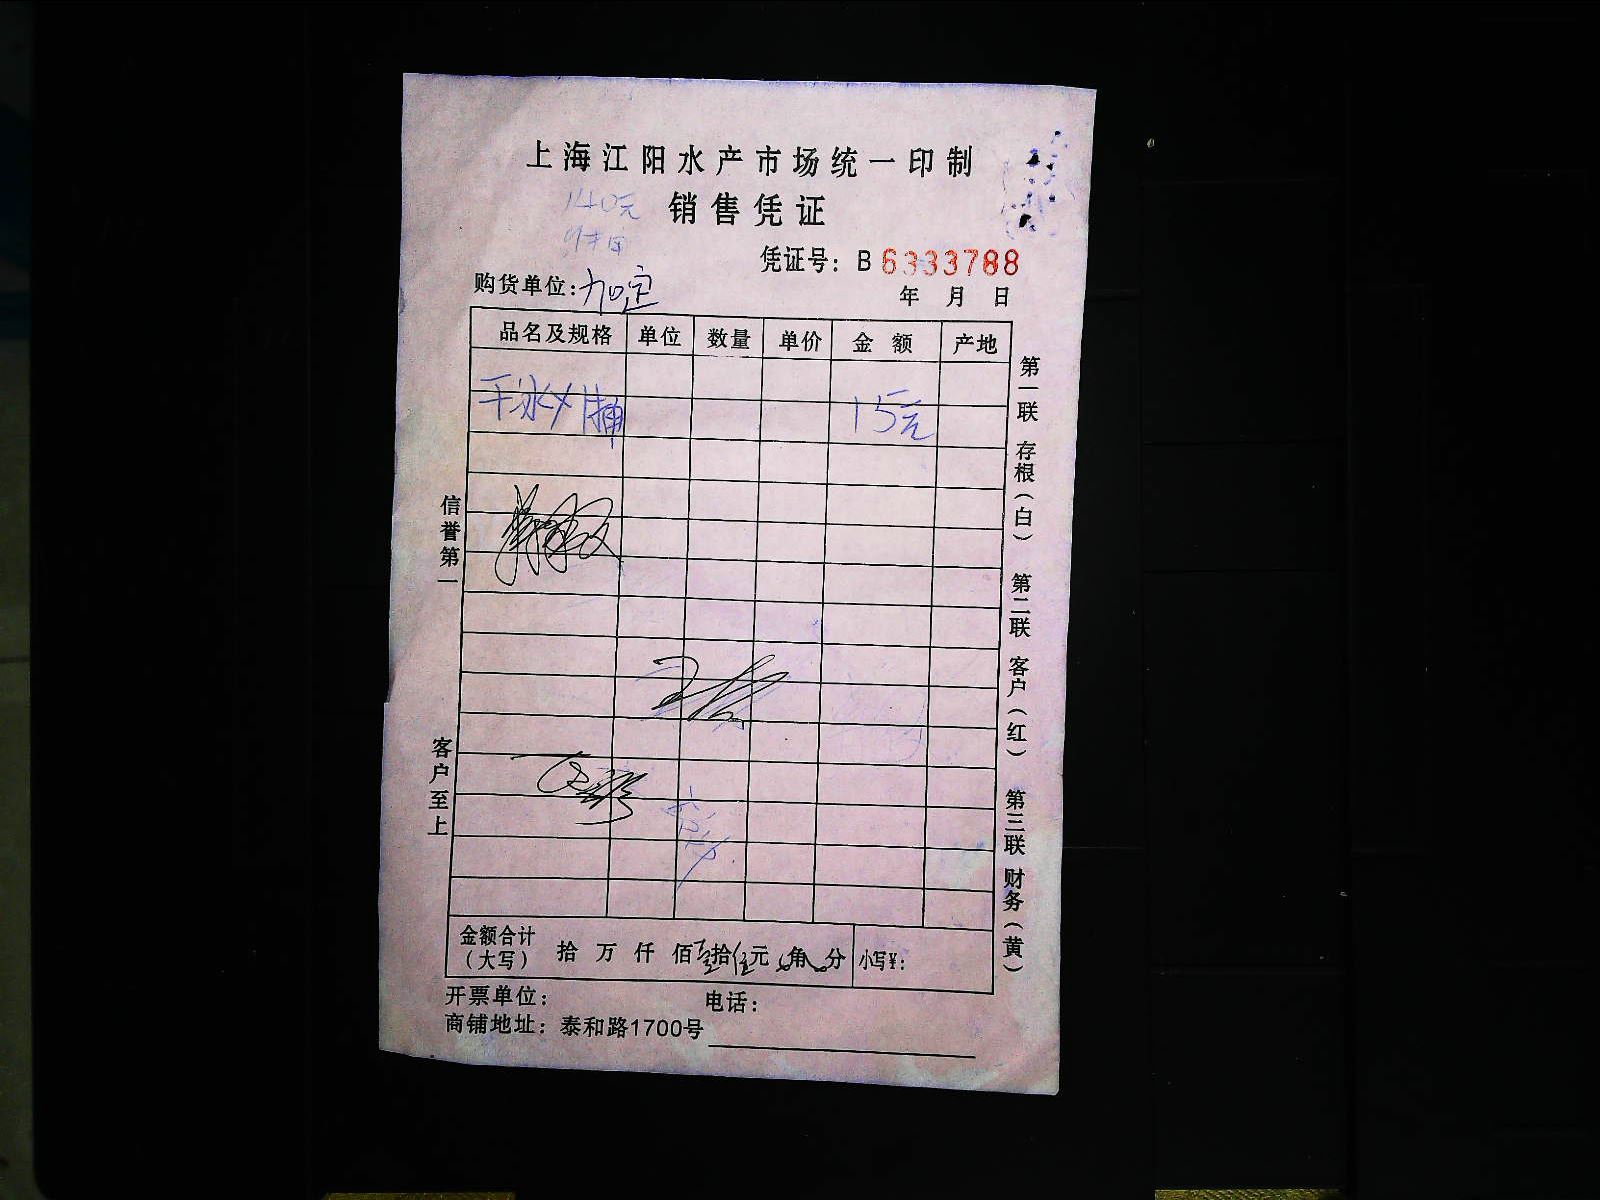 上海江阳水产市场统一印制
140元
销售凭证
凭证号：B 6333788
购货单位：加定
年 月 日
品名及规格 单位 数量 单价 金 额 产地
干冰 15元
信誉第一
客户至上
第一联 存根（白） 第二联 客户（红） 第三联 财务（黄）
金额合计（大写） 拾 万 仟 佰壹拾伍元 角 分 小写¥：
开票单位： 电话：
商铺地址：泰和路1700号